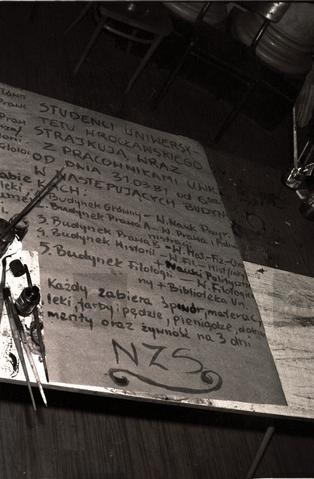 STUDENCI UNIWERSY-
TETU WROCŁAWSKIEGO
STRAJKUJĄ WRAZ
Z PRACOWNIKAMI UWR
OD DNIA 31.03.81 od
W NASTĘPUJĄCYCH BUDYN-
KACH:
1. Budynek Główny - W. Nauk Przyr.
2. Budynek Prawa A - W. Prawa i
3. Budynek Prawa B - W. Mat-Fiz-
4. Budynek Historii - W. Fil-Hist
+ Nauki Polityczne
5. Budynek Filologii - W. Filologicz
ny + Biblioteka Un.
Każdy zabiera śpiwór, materac
leki, farby i pędzle, pieniądze, doku
menty oraz żywność na 3 dni
NZS